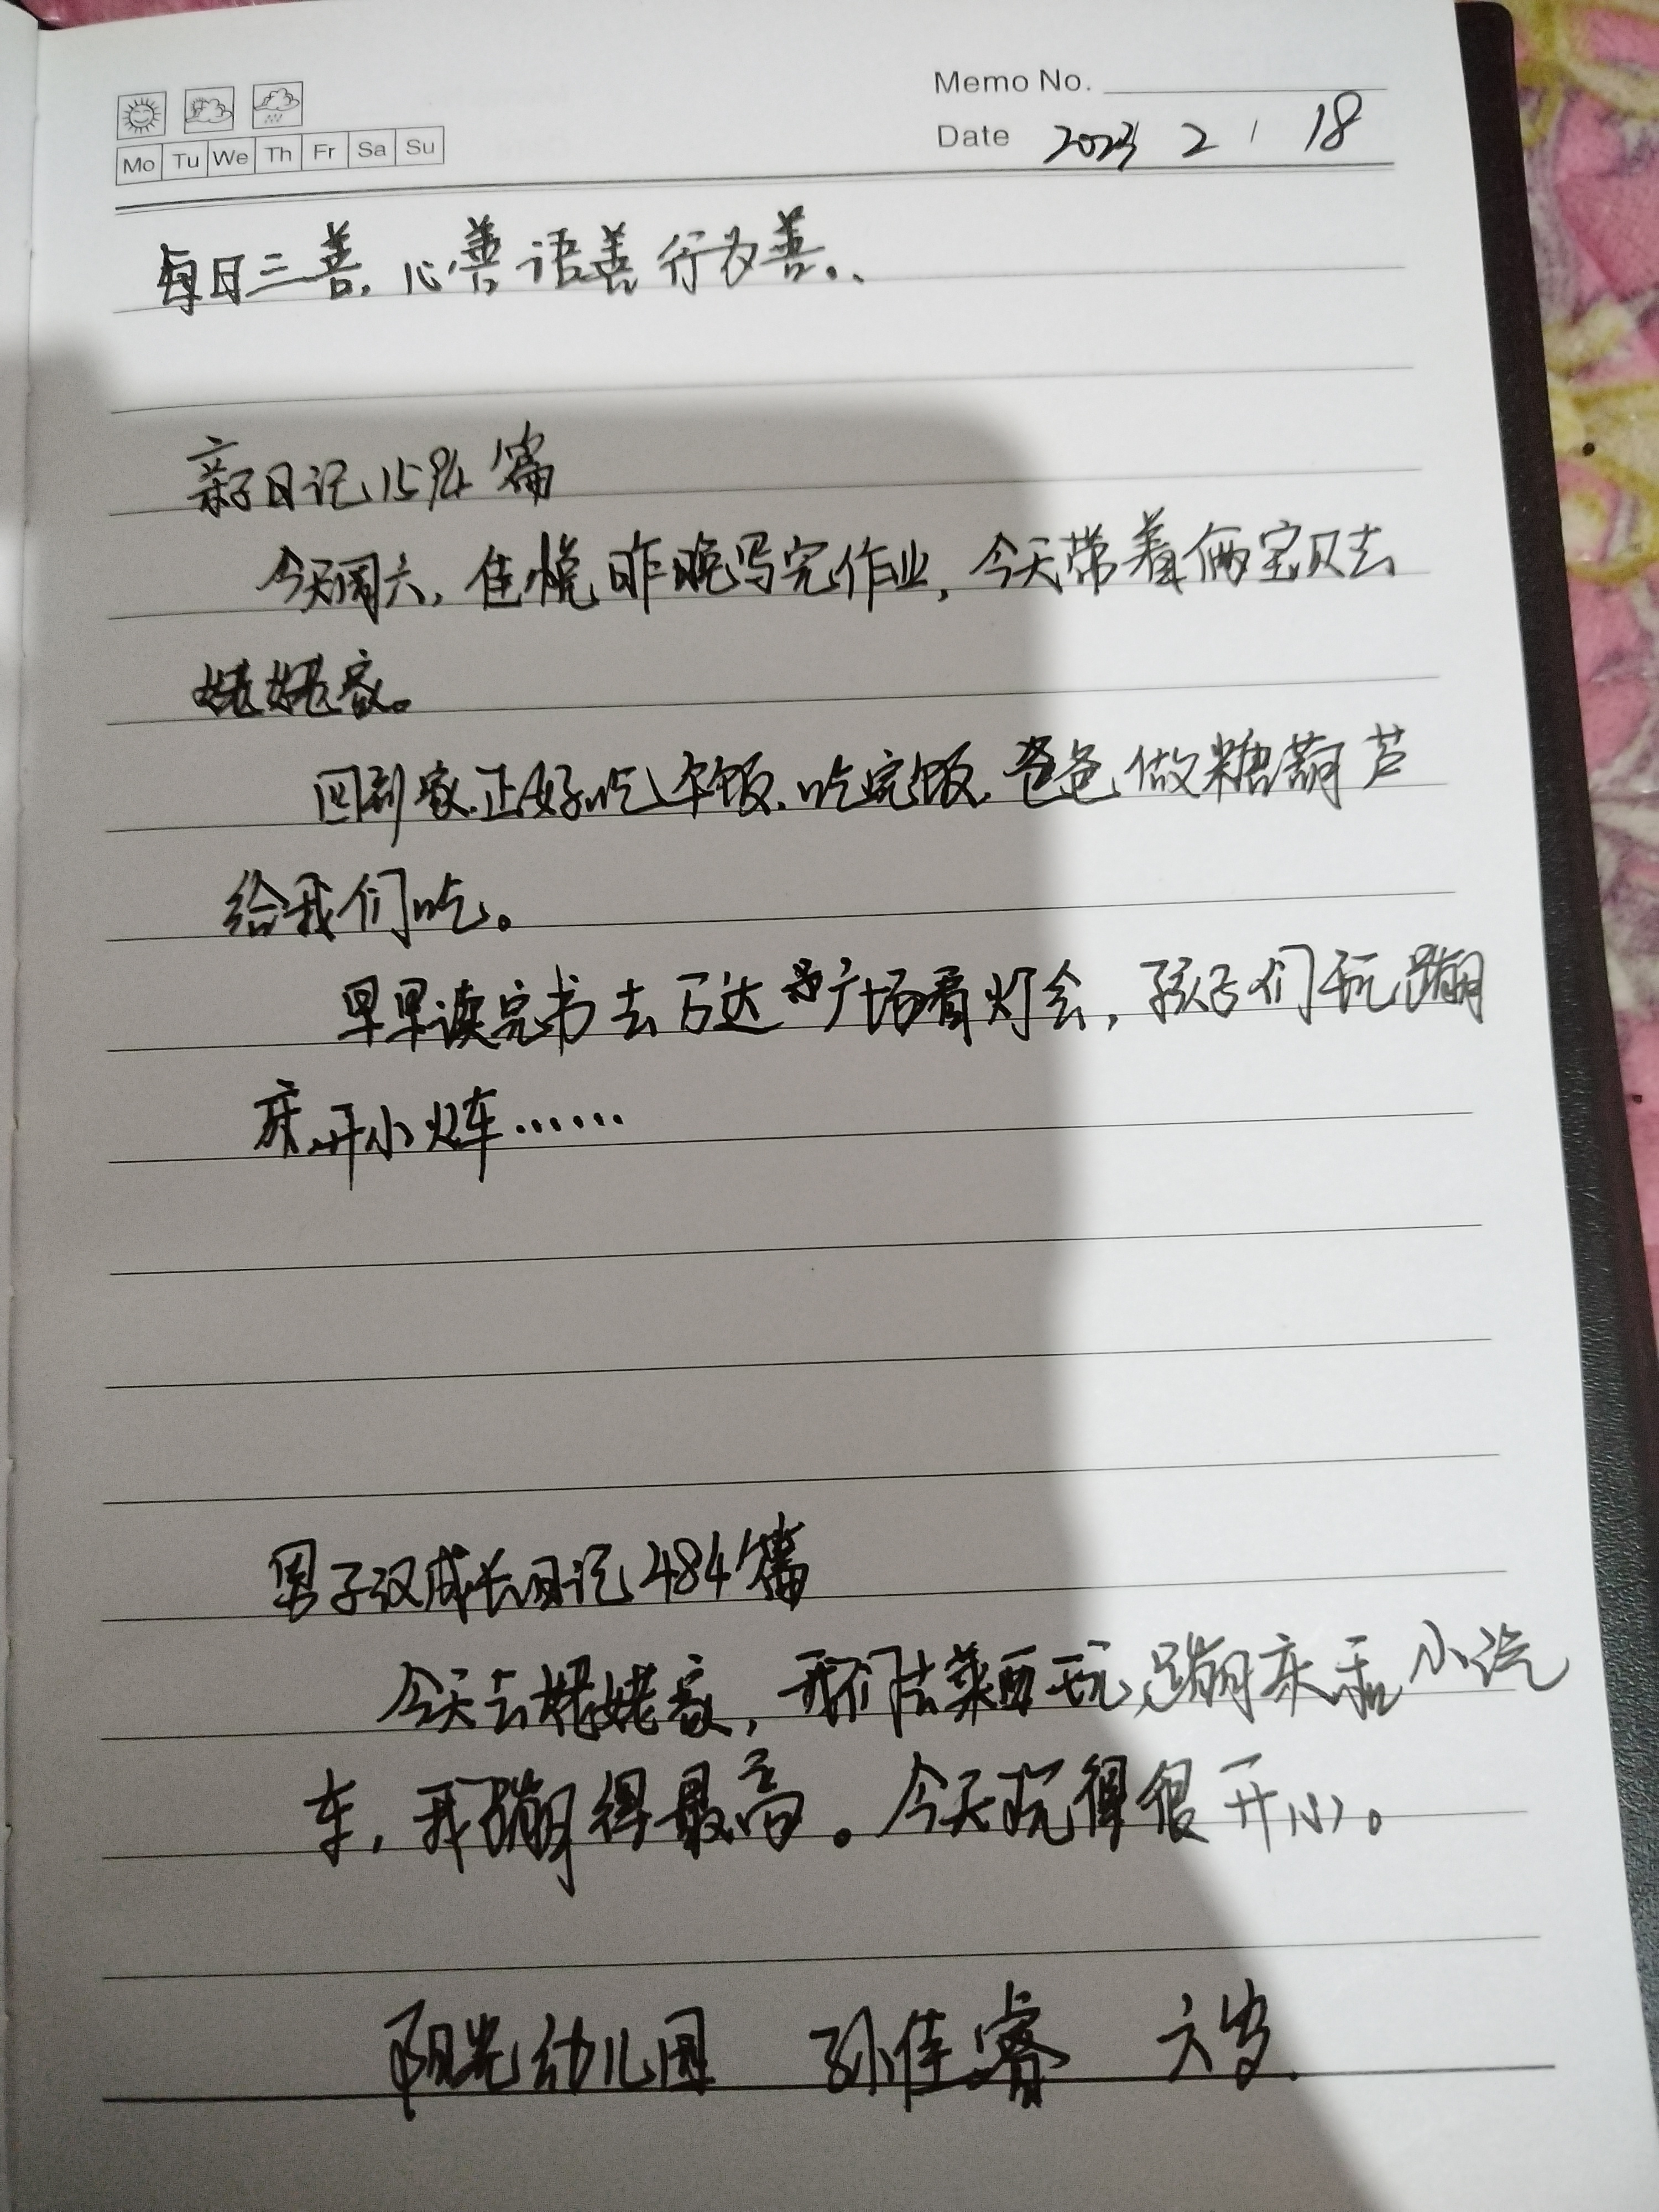 Memo No.
Mo Tu We Th Fr Sa Su
Date 2023 2 / 18
每日三善，心善语善行为善。
亲子日记1594篇
今天周六，佳悦昨晚写完作业，今天带着俩宝贝去
姥姥家。
回到家正好吃午饭，吃完饭，爸爸做糖葫芦
给我们吃。
早早读完书去万达广场看灯会，孩子们玩蹦
床开小火车……
男子汉成长日记484篇
今天去姥姥家，我们去莱西玩蹦床玩小汽
车，我蹦得最高。今天玩得很开心。
阳光幼儿园 孙佳睿 六岁.